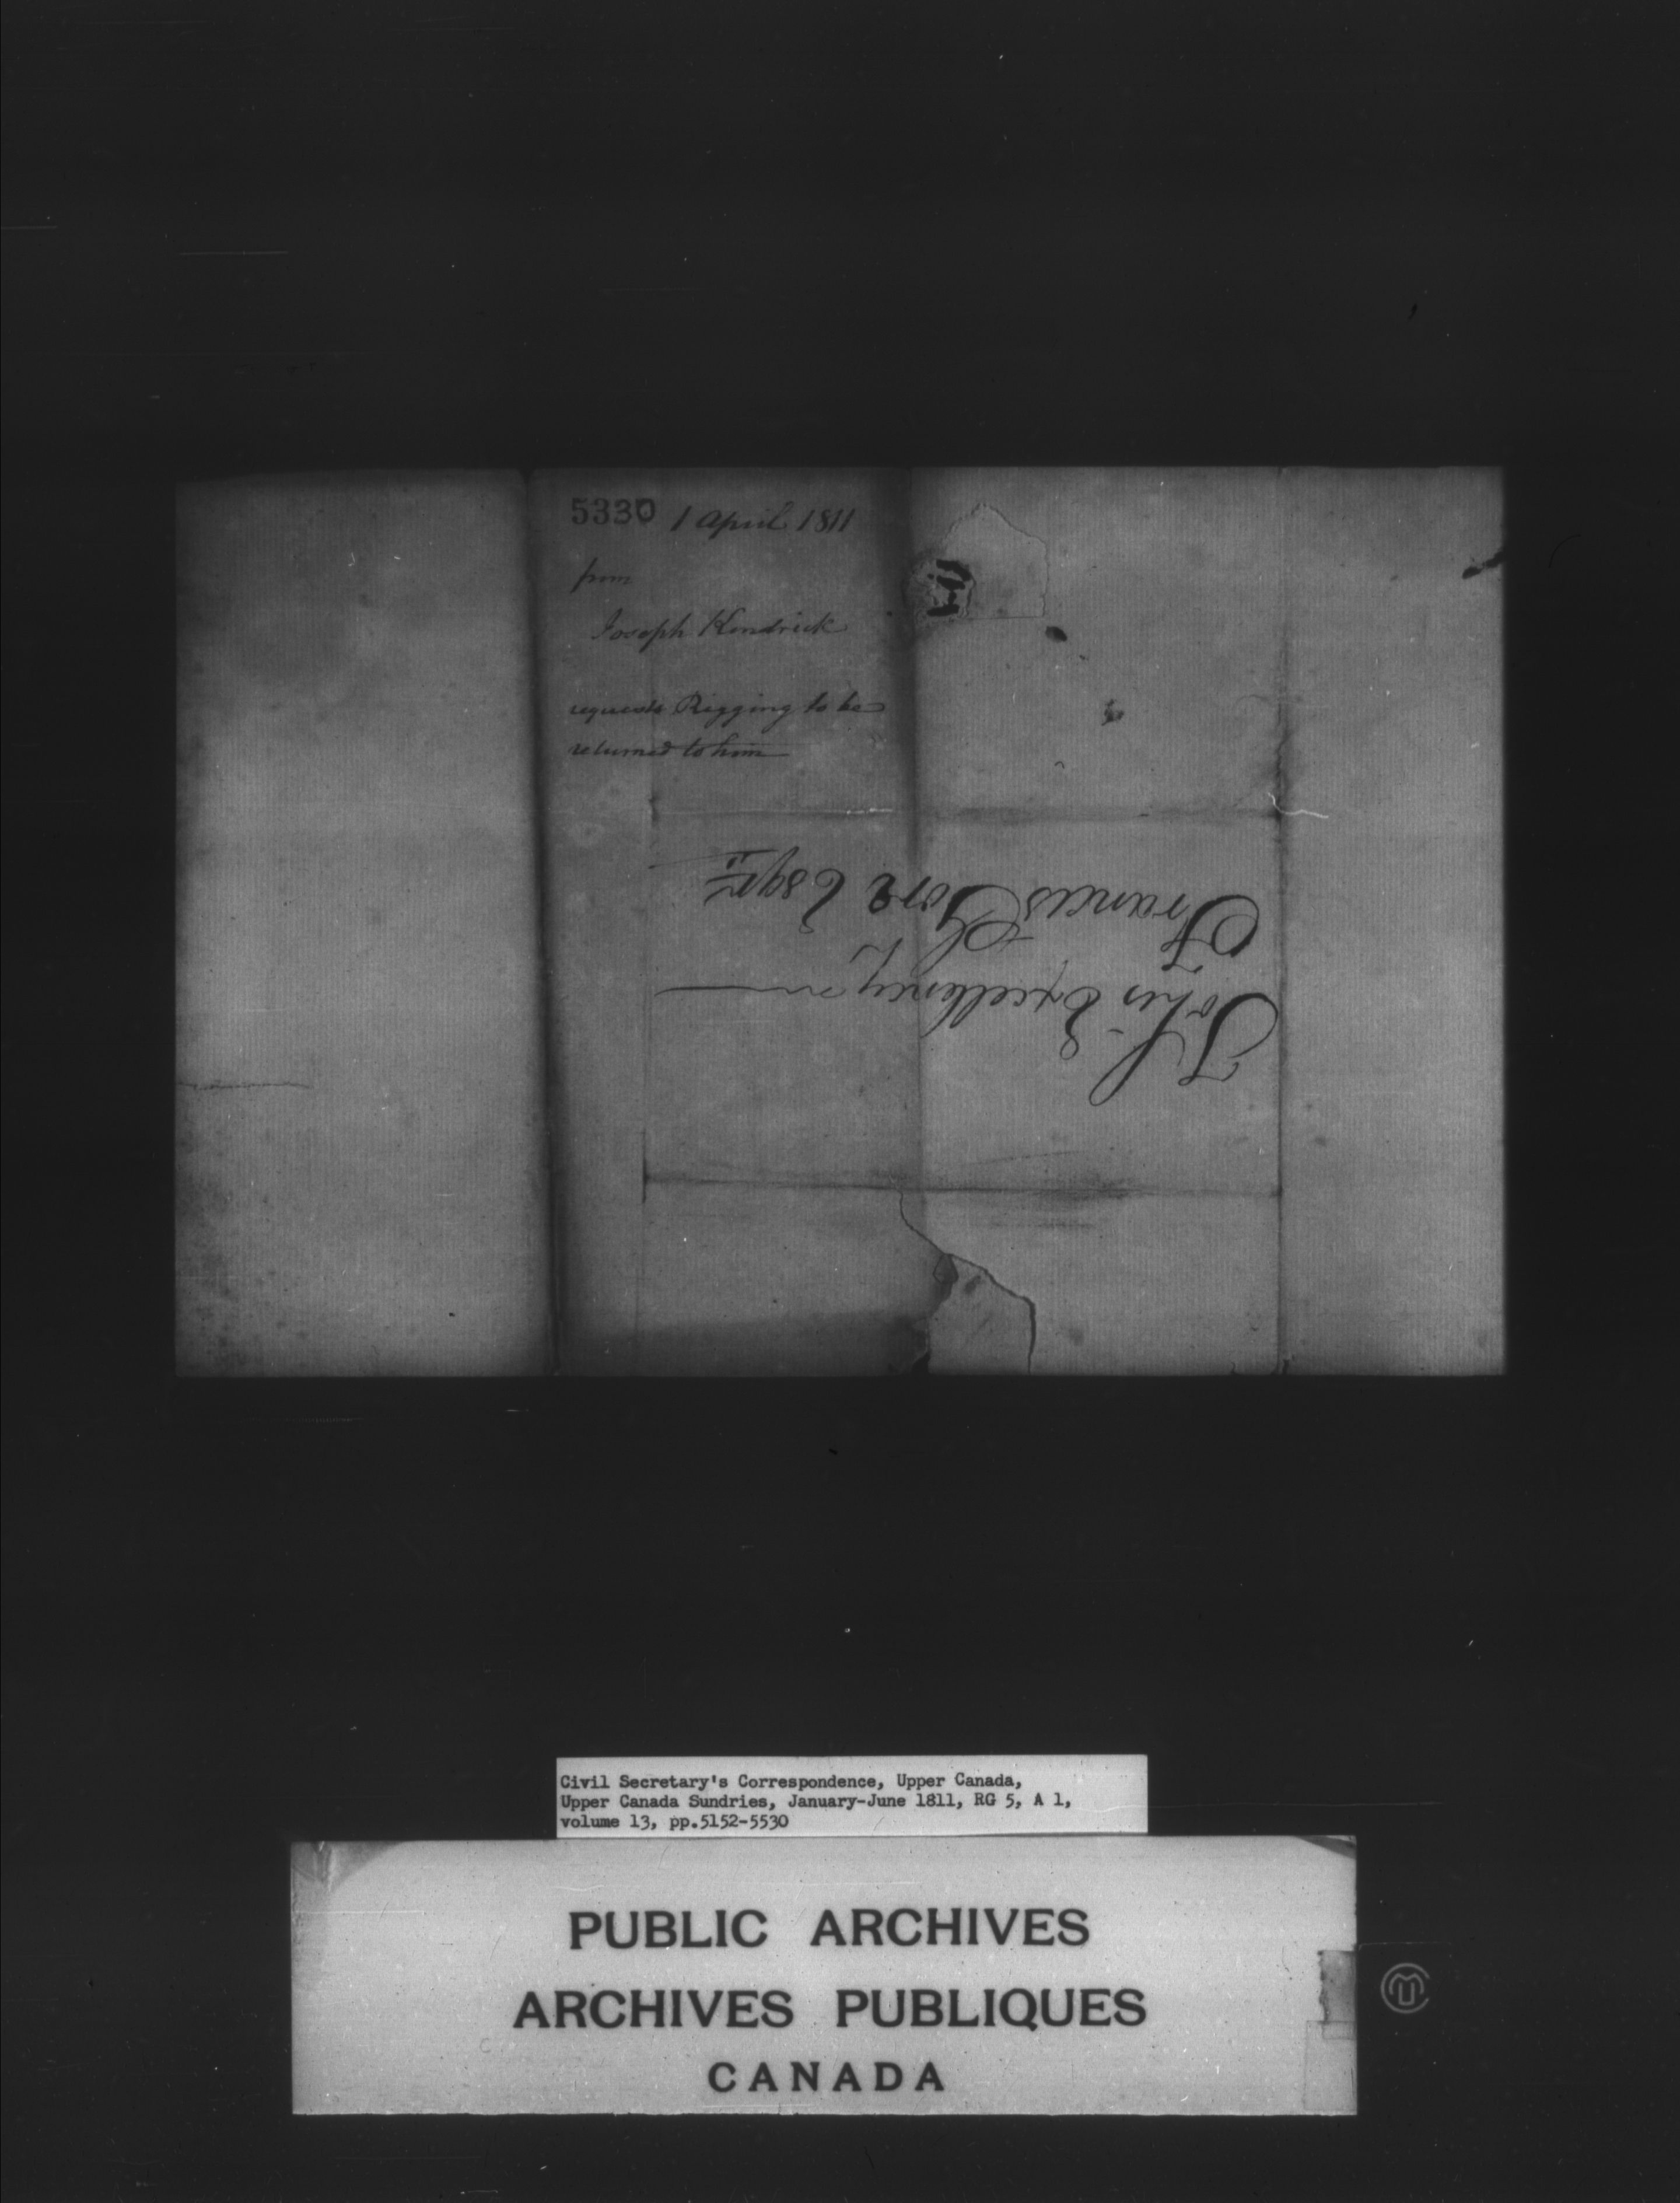 5330 1 April 1811
from
Joseph Kendrick
requests Rigging to be
returned to him
To his Excellency
Francis Gore Esqr
Civil Secretary's Correspondence, Upper Canada,
Upper Canada Sundries, January-June 1811, RG 5, A 1,
volume 13, pp.5152-5530
PUBLIC ARCHIVES
ARCHIVES PUBLIQUES
CANADA